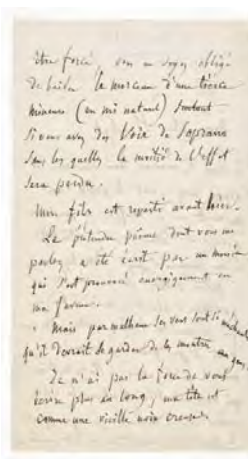 être forcé, vous en soyez obligé
de baisser le morceau d'une tierce
mineure (en mi naturel) surtout
si vous avez des Voix de Soprano
sans lesquelles la moitié de l'effet
sera perdu.
Mon fils est reparti avant hier.
Le prétendu poème dont vous me
parlez a été écrit par un monsieur
qui s'est prononcé énergiquement en
ma faveur.
Mais par malheur ses vers sont si méchants
qu'il devrait se garder de les montrer
Je n'ai pas la force de vous
écrire plus au long, ma tête est
comme une vieille noix creuse.